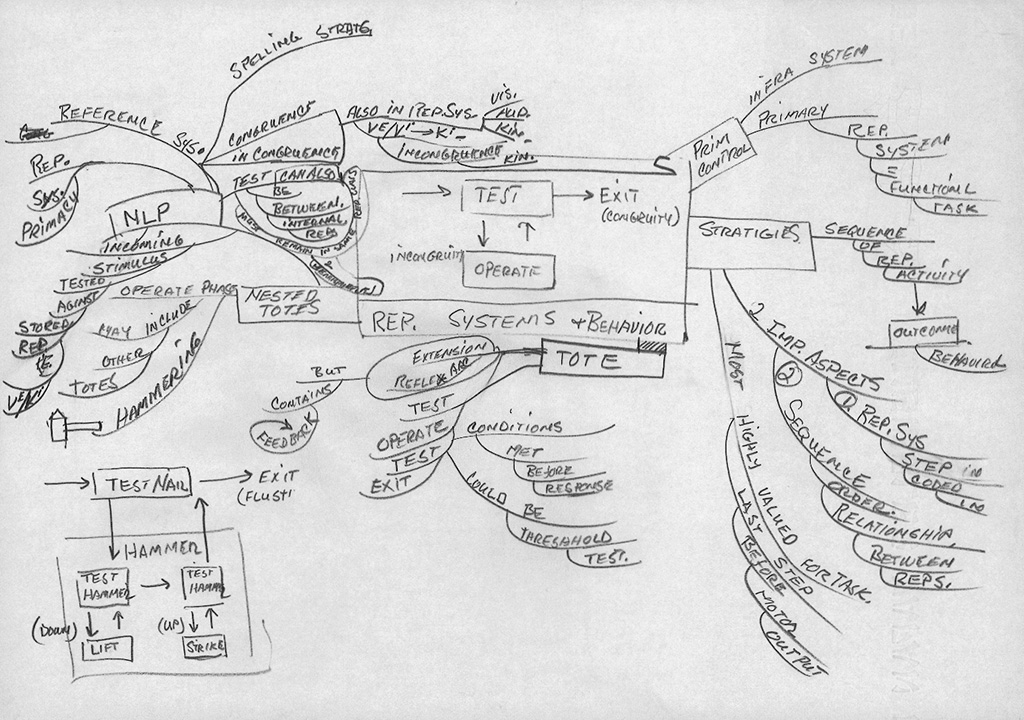 SPELLING STRATG
REFERENCE
SYS.
CONGRUENCE
IN CONGRUENCE
ALSO IN REP. SYS.
VIS.
AUD.
KIN.
VE/VI → KI-
INCONGRUENCE
KIN.
TEST CAN ALSO
BE
BETWEEN
INTERNAL
REPS
MUST
REMAIN IN SAME
REP. SYS
REP.
SYS.
PRIMACY
NLP
INCOMING
STIMULUS
TESTED
AGAINST
STORED
REP.
IE.
VE/VI
NESTED
TOTES
OPERATE PHASE
MAY INCLUDE
OTHER
TOTES
HAMMERING
TEST
EXIT
(CONGRUITY)
INCONGRUITY
OPERATE
REP. SYSTEMS + BEHAVIOR
TOTE
EXTENSION
REFLEX ARC
BUT
CONTAINS
FEEDBACK
TEST
OPERATE
TEST
EXIT
CONDITIONS
MET
BEFORE
RESPONSE
COULD
BE
THRESHOLD
TEST.
PRIM
CONTROL
INFRA SYSTEM
PRIMARY
REP.
SYSTEM
=
FUNCTION L
TASK
STRATIGIES
SEQUENCE
OF
REP.
ACTIVITY
OUTCOME
BEHAVIOR
2 IMP. ASPECTS
1. REP. SYS
STEP IN
CODED
IN
2
SEQUENCE
ORDER.
RELATIONSHIP
BETWEEN
REPS.
MOST
HIGHLY VALUED FOR TASK.
LAST STEP
BEFORE
MOTOR
OUTPUT
TEST NAIL
EXIT
(FLUSH)
HAMMER
TEST
HAMMER
TEST
HAMMER
(DOWN)
LIFT
(UP)
STRIKE